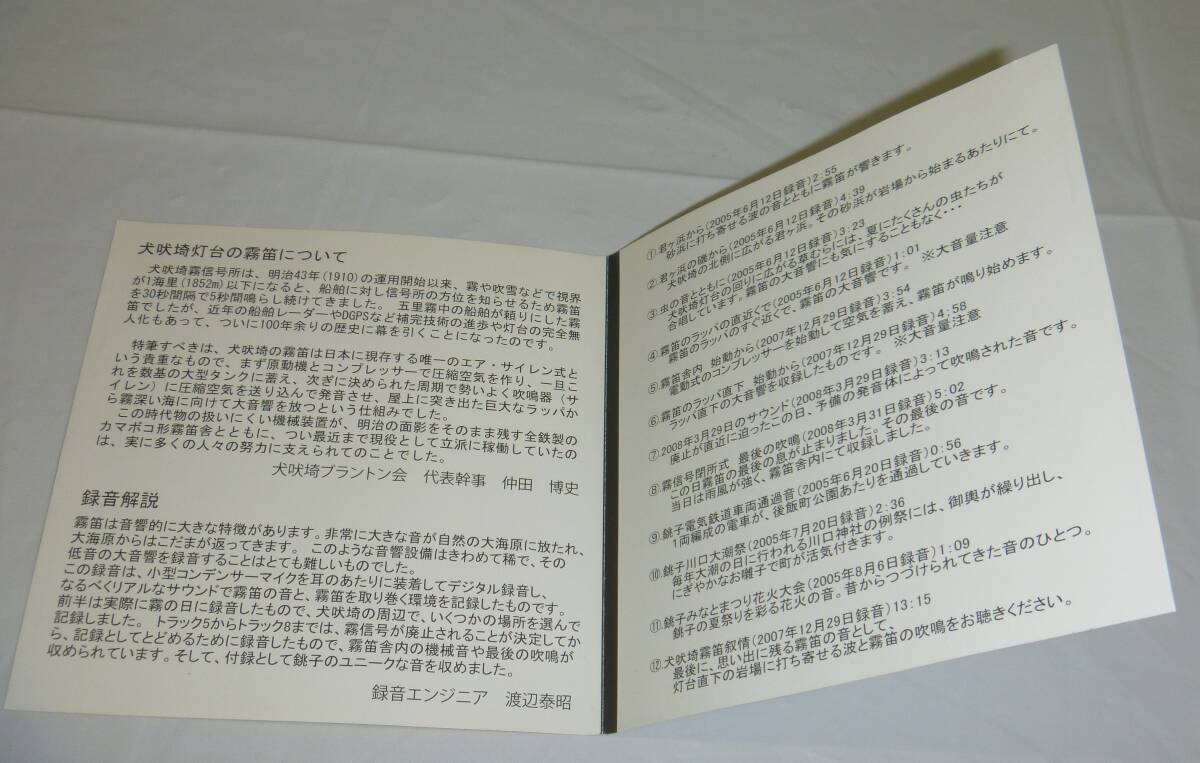 犬吠埼灯台の霧笛について
犬吠埼霧信号所は、明治43年(1910)の運用開始以来、霧や吹雪などで視界
が1海里(1852m)以下になると、船舶に対し信号所の方位を知らせるため霧笛
を30秒間隔で5秒間鳴らし続けてきました。 五里霧中の船舶が頼りにした霧
笛でしたが、近年の船舶レーダーやDGPSなど補完技術の進歩や灯台の完全無
人化もあって、ついに100年余りの歴史に幕を引くことになったのです。
特筆すべきは、犬吠埼の霧笛は日本に現存する唯一のエア・サイレン式と
いう貴重なもので、まず原動機とコンプレッサーで圧縮空気を作り、一旦こ
れを数基の大型タンクに蓄え、次ぎに決められた周期で勢いよく吹鳴器（サ
イレン）に圧縮空気を送り込んで発音させ、屋上に突き出た巨大なラッパか
ら霧深い海に向けて大音響を放つという仕組みでした。
この時代物の扱いにくい機械装置が、明治の面影をそのまま残す全鉄製の
カマボコ形霧笛舎とともに、つい最近まで現役として立派に稼働していたの
は、実に多くの人々の努力に支えられてのことでした。
犬吠埼ブラントン会 代表幹事 仲田 博史
録音解説
霧笛は音響的に大きな特徴があります。非常に大きな音が自然の大海原に放たれ、
大海原からはこだまが返ってきます。 このような音響設備はきわめて稀で、その
低音の大音響を録音することはとても難しいものでした。
この録音は、小型コンデンサーマイクを耳のあたりに装着してデジタル録音し、
なるべくリアルなサウンドで霧笛の音と、霧笛を取り巻く環境を記録したものです。
前半は実際に霧の日に録音したもので、犬吠埼の周辺で、いくつかの場所を選んで
記録しました。 トラック5からトラック8までは、霧信号が廃止されることが決定してか
ら、記録としてとどめるために録音したもので、霧笛舎内の機械音や最後の吹鳴が
収められています。そして、付録として銚子のユニークな音を収めました。
録音エンジニア 渡辺泰昭
①.君ヶ浜から(2005年6月12日録音)2:55
砂浜に打ち寄せる波の音とともに霧笛が響きます。
②.君ヶ浜の磯から(2005年6月12日録音)4:39
犬吠埼の北側に広がる君ヶ浜。その砂浜が岩場から始まるあたりにて。
③.虫の音とともに(2005年6月12日録音)3:23
犬吠埼灯台の回りに広がる草むらには、夏にたくさんの虫たちが
合唱しています。霧笛の大音響にも気にすることもなく・・・
④.霧笛のラッパの直近くで(2005年6月12日録音)1:01
霧笛のラッパのすぐ近くで、霧笛の大音響です。 ※大音量注意
⑤.霧笛舎内 始動から(2007年12月29日録音)3:54
電動式のコンプレッサーを始動して空気を蓄え、霧笛が鳴り始めます。
⑥.霧笛のラッパ直下 始動から(2007年12月29日録音)4:58
ラッパ直下の大音響を収録したものです。 ※大音量注意
⑦.2008年3月29日のサウンド(2008年3月29日録音)3:13
廃止が直近に迫ったこの日、予備の発音体によって吹鳴された音です。
⑧.霧信号閉所式 最後の吹鳴(2008年3月31日録音)5:02
この日霧笛の最後の息が止まりました。その最後の音です。
当日は雨風が強く、霧笛舎内にて収録しました。
⑨.銚子電気鉄道車両通過音(2005年6月20日録音)0:56
1両編成の電車が、後飯町公園あたりを通過していきます。
⑩.銚子川口大潮祭(2005年7月20日録音)2:36
毎年大潮の日に行われる川口神社の例祭には、御輿が繰り出し、
にぎやかなお囃子で町が活気付きます。
⑪.銚子みなとまつり花火大会(2005年8月6日録音)1:09
銚子の夏祭りを彩る花火の音。昔からつづけられてきた音のひとつ。
⑫.犬吠埼霧笛叙情(2007年12月29日録音)13:15
最後に、思い出に残る霧笛の音として、
灯台直下の岩場に打ち寄せる波と霧笛の吹鳴をお聴きください。